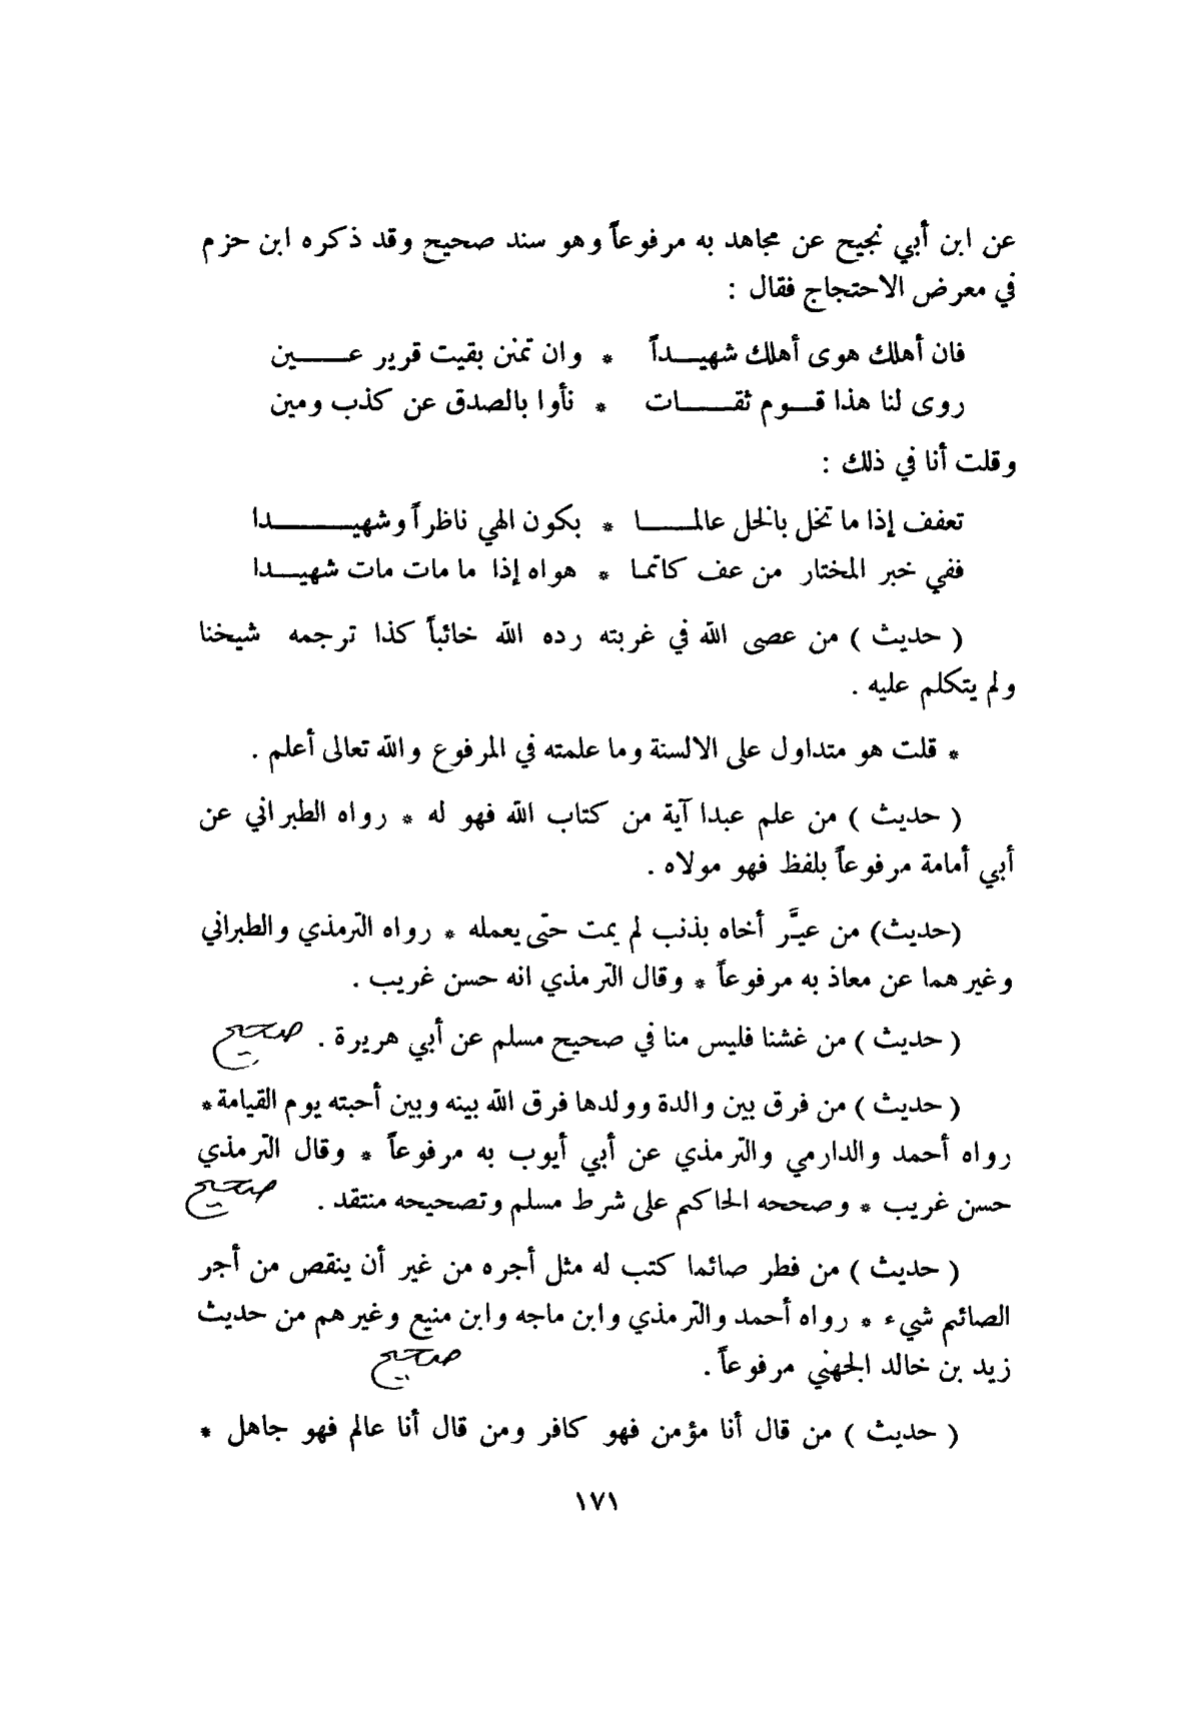 عن ابن أبي نجيح عن مجاهد به مرفوعاً وهو سند صحيح وقد ذكره ابن حزم
في معرض الاحتجاج فقال :
فان أهلك هوى أهلك شهيـــداً * وان تمنن بقيت قرير عـــــين
روى لنا هذا قـــوم ثقـــــات * نأوا بالصدق عن كذب ومين
وقلت أنا في ذلك :
تعفف إذا ما تخل بالخل عالمـــــا * بكون الهي ناظراً وشهيـــــــدا
ففي خبر المختار من عف كاتما * هواه إذا ما مات مات شهيـــدا
( حديث ) من عصى الله في غربته رده الله خائباً كذا ترجمه شيخنا
ولم يتكلم عليه .
* قلت هو متداول على الالسنة وما علمته في المرفوع والله تعالى أعلم .
( حديث ) من علم عبدا آية من كتاب الله فهو له * رواه الطبراني عن
أبي أمامة مرفوعاً بلفظ فهو مولاه .
(حديث) من عيَّر أخاه بذنب لم يمت حتى يعمله * رواه الترمذي والطبراني
وغيرهما عن معاذ به مرفوعاً * وقال الترمذي انه حسن غريب .
( حديث ) من غشنا فليس منا في صحيح مسلم عن أبي هريرة . صحيح
( حديث ) من فرق بين والدة وولدها فرق الله بينه وبين أحبته يوم القيامة *
رواه أحمد والدارمي والترمذي عن أبي أيوب به مرفوعاً * وقال الترمذي
حسن غريب * وصححه الحاكم على شرط مسلم وتصحيحه منتقد . صحيح
( حديث ) من فطر صائما كتب له مثل أجره من غير أن ينقص من أجر
الصائم شيء * رواه أحمد والترمذي وابن ماجه وابن منيع وغيرهم من حديث
زيد بن خالد الجهني مرفوعاً . صحيح
( حديث ) من قال أنا مؤمن فهو كافر ومن قال أنا عالم فهو جاهل *
١٧١